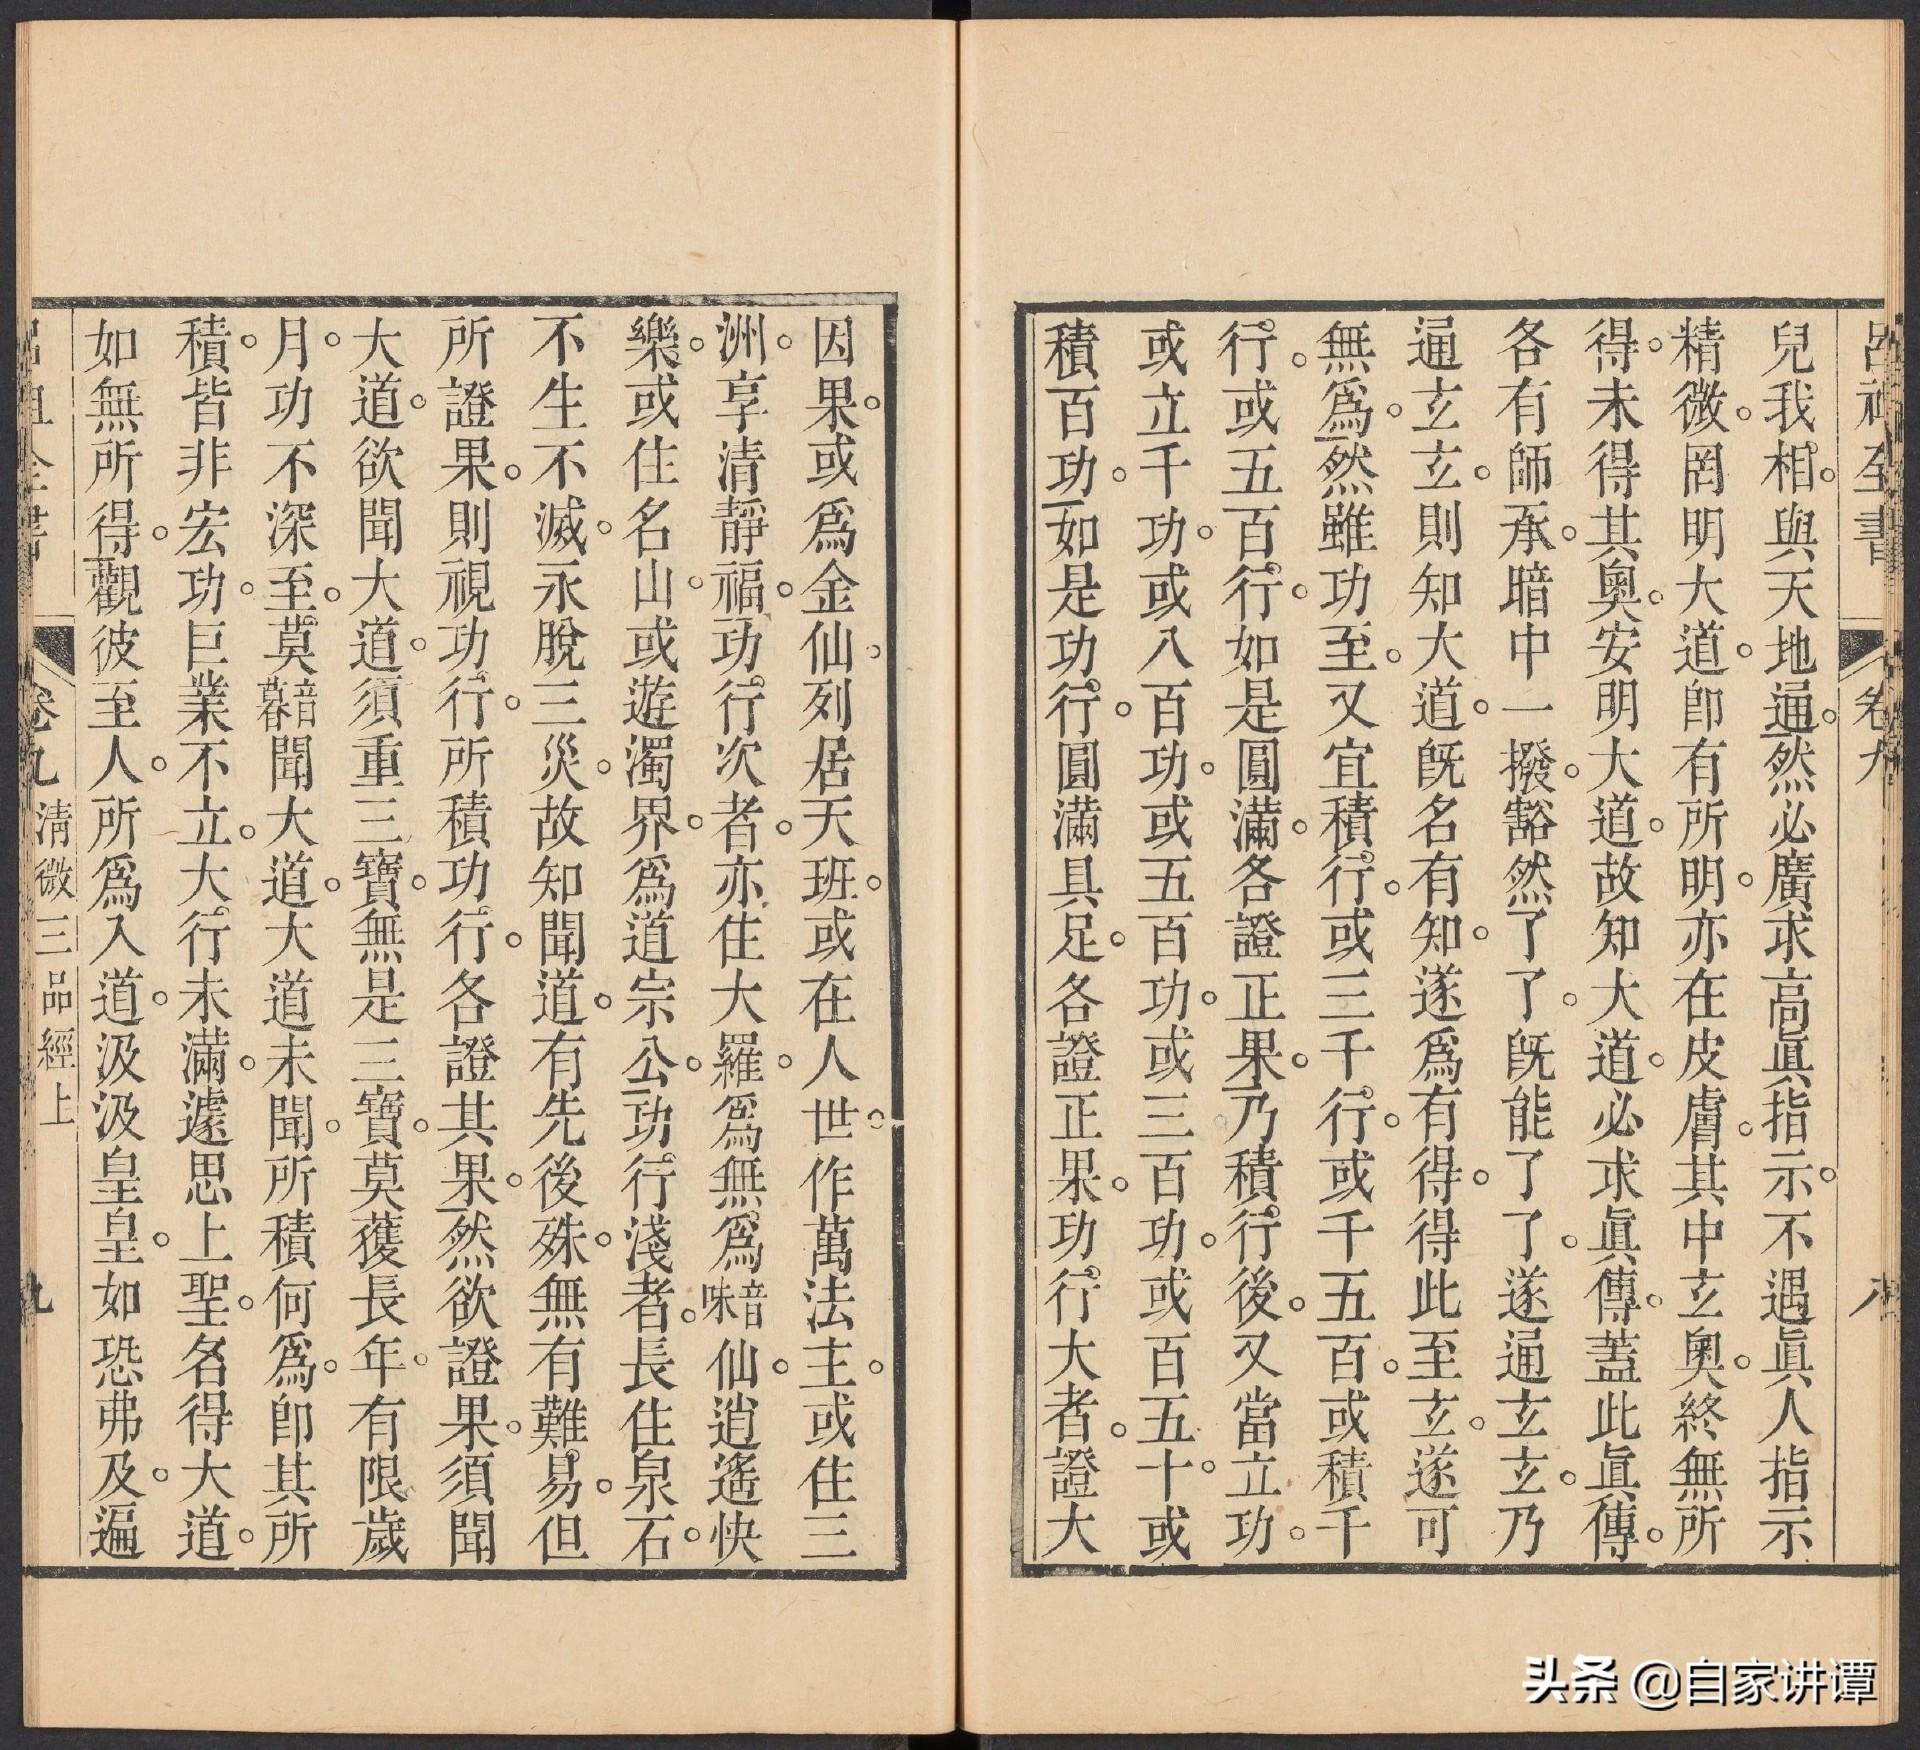 呂祖全書 卷九 八
兒我相。與天地通。然必廣求高眞指示。不遇眞人指示
精微。罔明大道。卽有所明。亦在皮膚。其中玄奧。終無所
得。未得其奧。安明大道。故知大道。必求眞傳。蓋此眞傳。
各有師承。暗中一撥。豁然了了。旣能了了。遂通玄玄。乃
通玄玄。則知大道。旣名有知。遂爲有得。得此至玄。遂可
無爲。然雖功至。又宜積行。或三千行。或千五百。或積千
行。或五百行。如是圓滿。各證正果。乃積行後。又當立功。
或立千功。或八百功。或五百功。或三百功。或百五十。或
積百功。如是功行。圓滿具足。各證正果。功行大者。證大
因果。或爲金仙。列居天班。或在人世。作萬法主。或住三
洲。享清靜福。功行次者。亦住大羅。爲無爲音味仙。逍遙快
樂。或住名山。或遊濁界。爲道宗公。功行淺者。長住泉石。
不生不滅。永脫三災。故知聞道。有先後殊。無有難易。但
所證果。則視功行。所積功行。各證其果。然欲證果。須聞
大道。欲聞大道。須重三寶。無是三寶。莫獲長年。有限歲
月。功不深至。莫音暮聞大道。大道未聞。所積何爲。卽其所
積。皆非宏功。巨業不立。大行未滿。遽思上聖。名得大道。
如無所得。觀彼至人。所爲入道。汲汲皇皇。如恐弗及。遍
呂祖全書 卷九 清微三品經上 九
头条 @自家讲谭